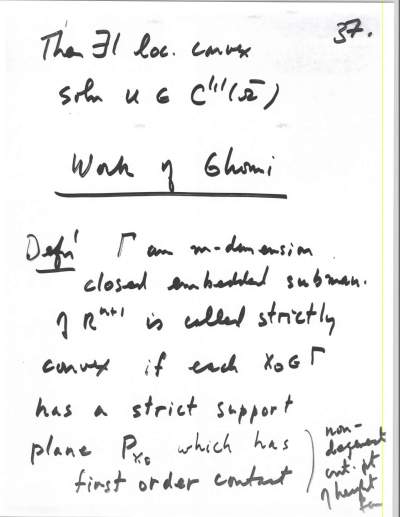 37.
Then ∃! loc. convex
soln u ∈ C^{1,1}(Ω̄)
Work of Ghomi
Defn' Γ an m-dimension
closed embedded subman.
of R^{n+1} is called strictly
convex if each x₀ ∈ Γ
has a strict support
plane P_{x₀} which has
first order contact
non-
degenerate
crit. pt
of height
fcn